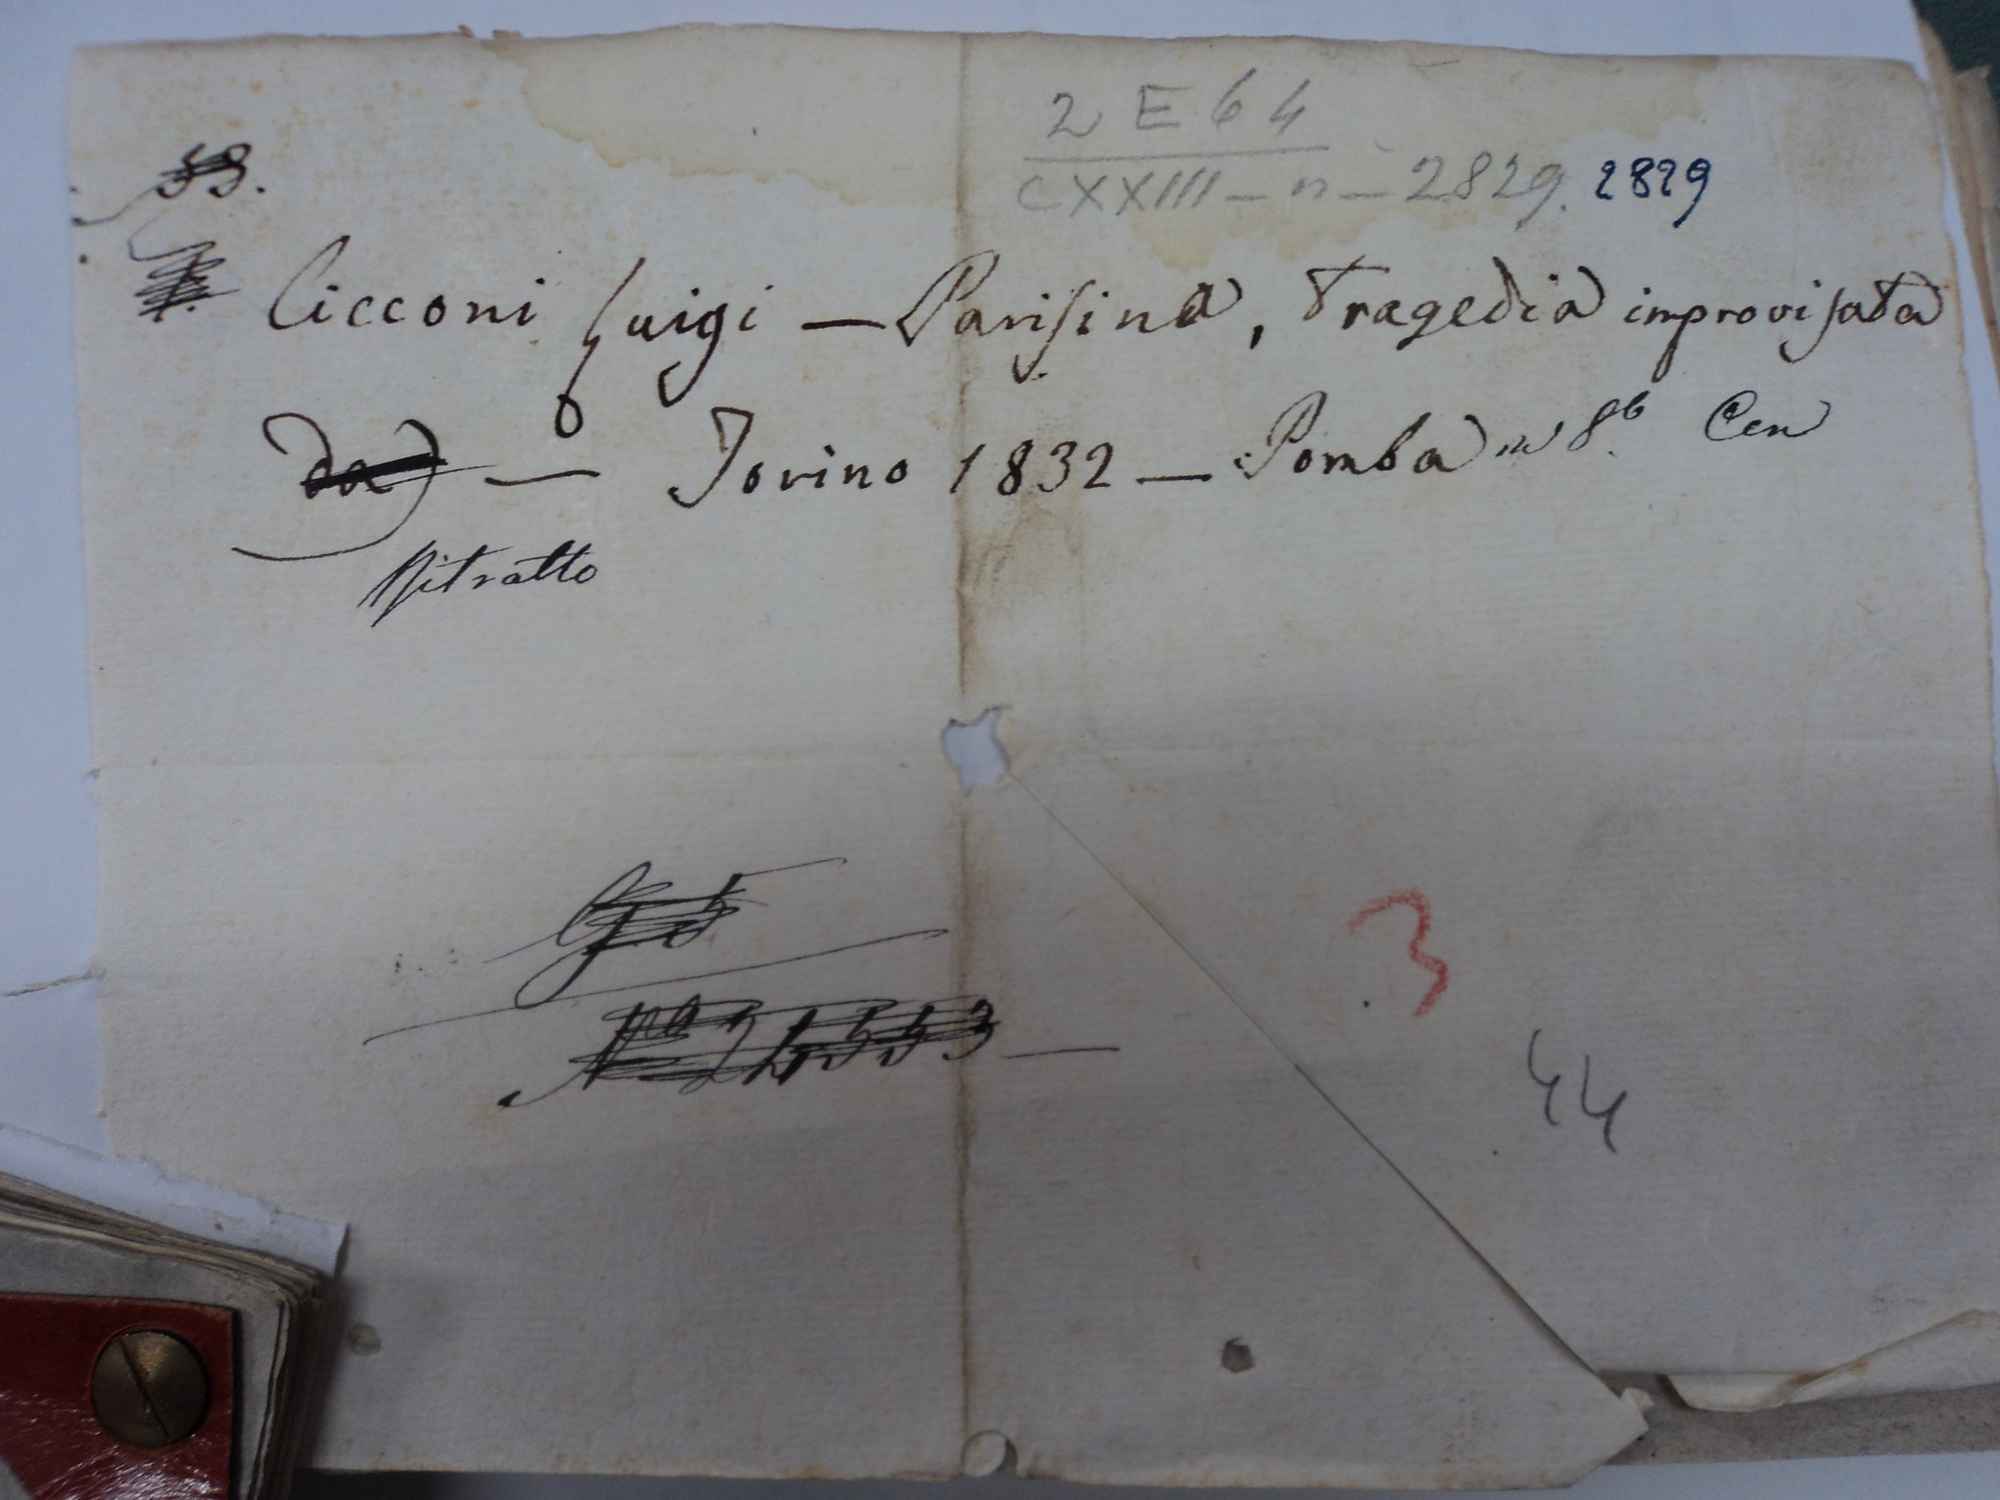 2 E 64
CXXIII - n - 2829. 2829
Cicconi Luigi — Parisina, tragedia improvisata
da — Torino 1832 — Pomba in 8.º Cen
Ritratto
3
44